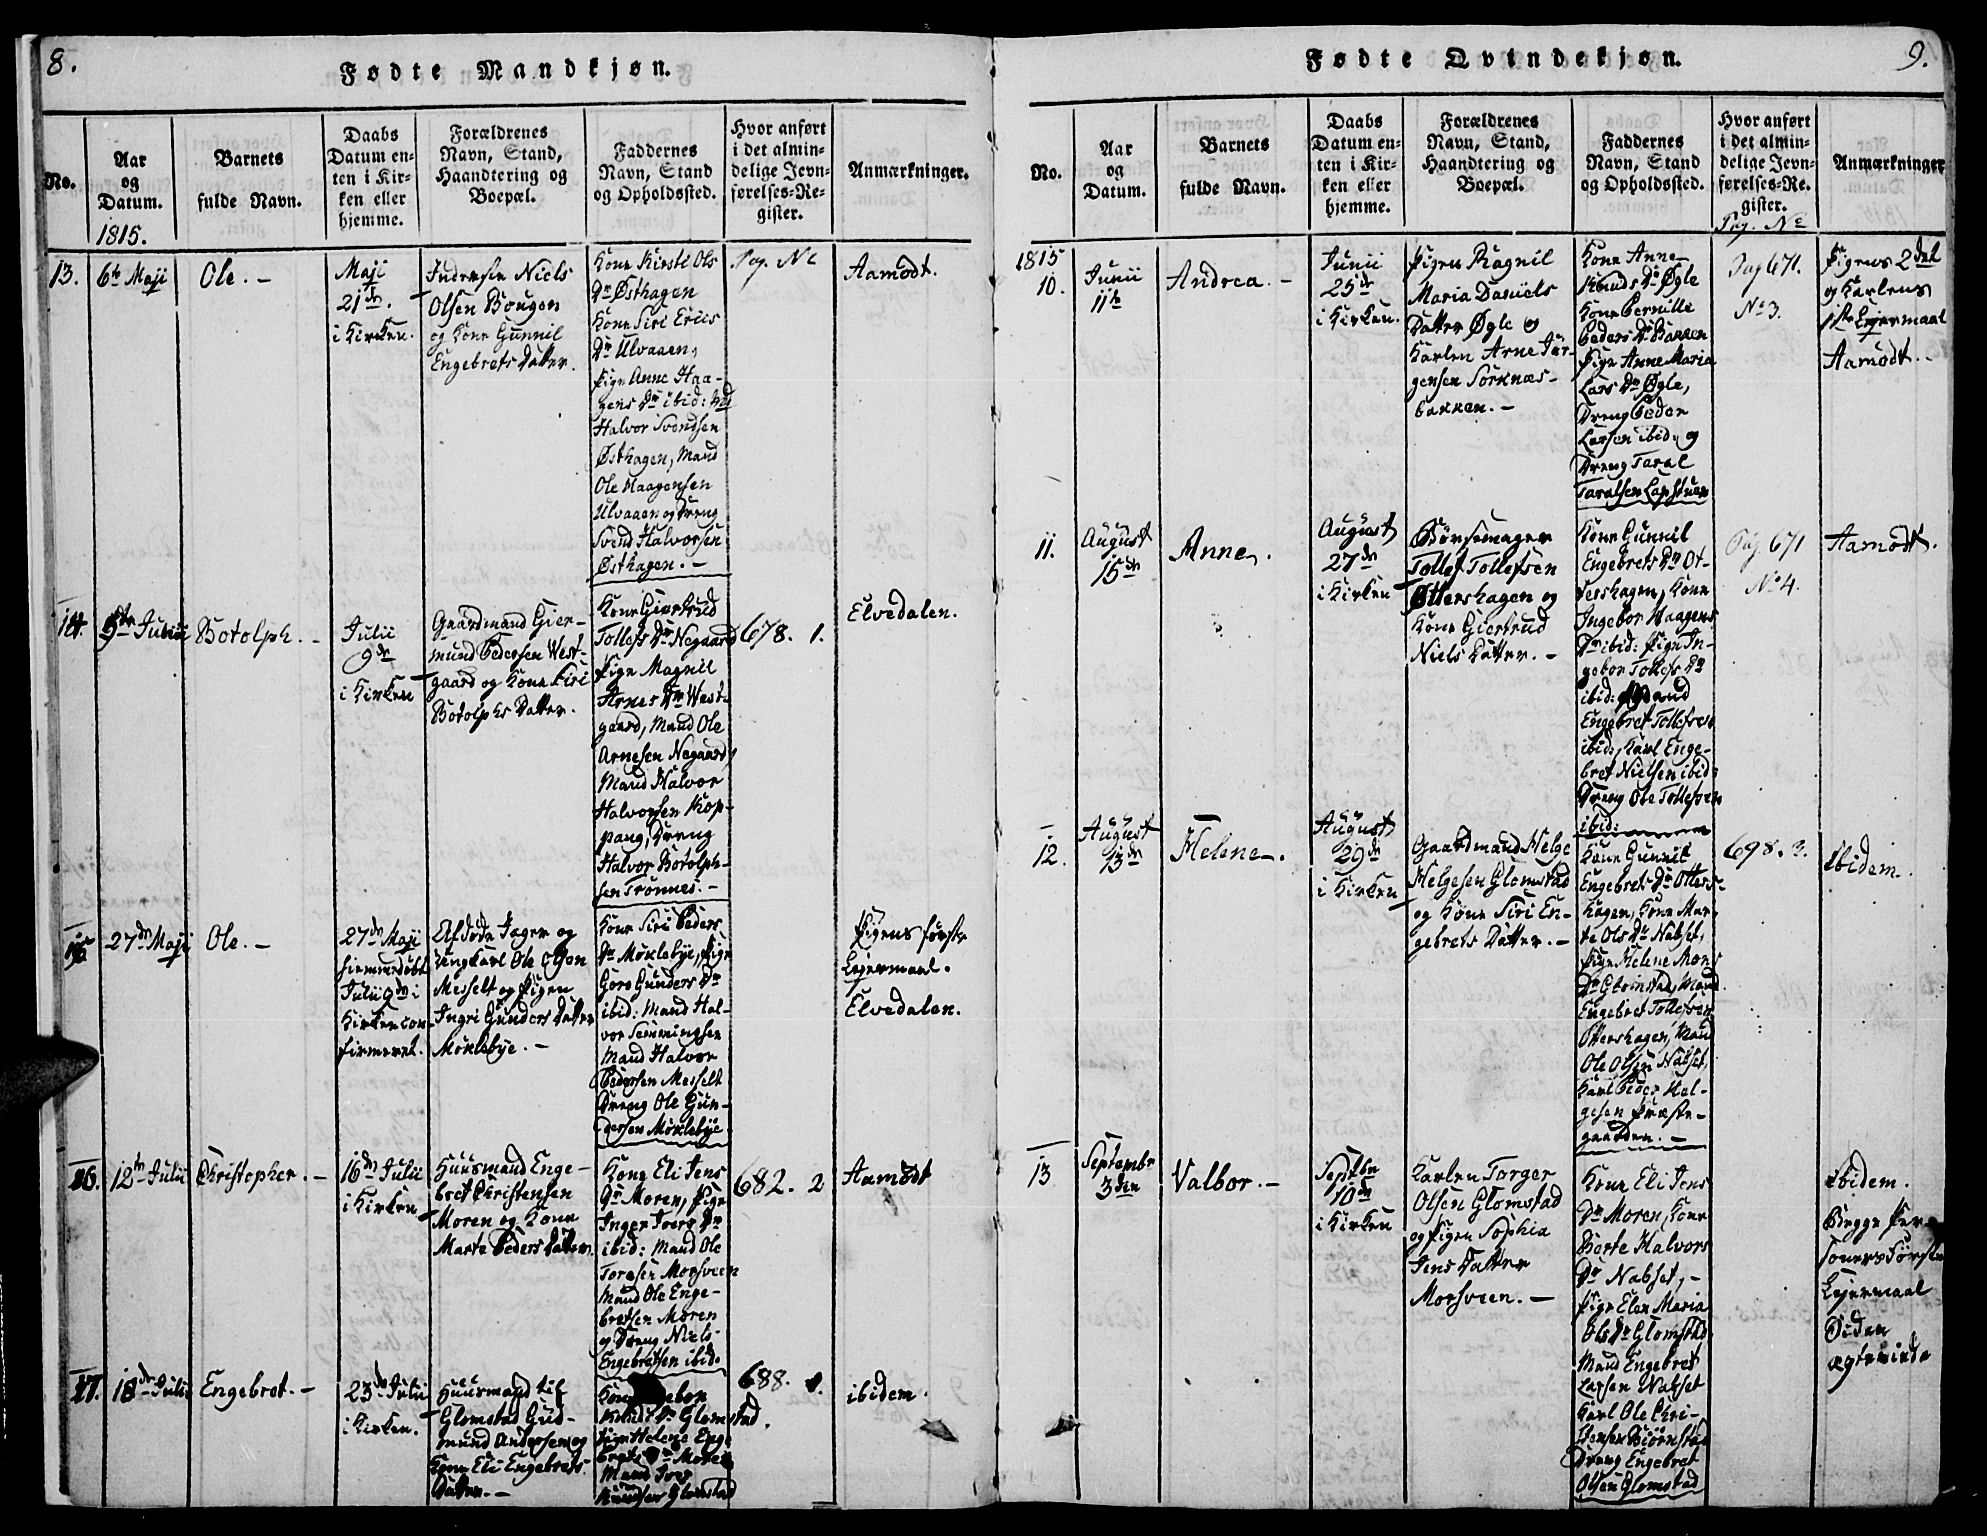 8.
Fødte Mandkjøn.
No.
Aar
og
Datum.
1815.
Barnets
fulde Navn.
Daabs
Datum en-
ten i Kir-
ken eller
hjemme.
Forældrenes
Navn, Stand,
Haandtering og
Boepæl.
Faddernes
Navn, Stand
og Opholdssted.
Hvor anført
i det almin-
delige Jevn-
førelses-Re-
gister.
Anmærkninger.
13.
6te Maji
Ole. -
Maji
21de
i Kirken.
Inderste Niels
Olsen Bougen
og Kone Gunnil
Engebrets Datter.
Kone Kirsti Ols
Dr Østhagen
Kone Siri Erics
Dr Ulvaaen,
Pige Anne Haa-
gens Dr ibid:
Halvor Svendsen
Østhagen, Mand
Ole Haagensen
Ulvaaen og Dreng
Svend Halvorsen
Østhagen. -
Pag. No
Aamodt.
14.
5te Julii
Botolph. -
Julii
9de
i Kirken
Gaardmand Gier-
mund Pedersen West-
gaard og Kone Siri
Botolphs Datter.
Kone Giertrud
Tollefs Dr Negaard
Pige Magnil
Arnes Dr West-
gaard, Mand Ole
Arnesen Negaard,
Mand Halvor
Halvorsen Kop-
pang, Dreng
Halvor Botolph-
sen Trønnes. -
678. 1.
Elvedalen.
15
27de Maji
Ole. -
27de Maji
hiemmedøbt
Julii 9de i
Kirken con-
firmeret.
Afdøde Jager og
Ungkarl Ole Olsen
Messelt og Pigen
Ingri Gunders Datter
Møklebye. -
Kone Siri Peders
Dr Møklebye, Pige
Goro Gunders Dr
ibid: Mand Hal-
vor Semmingsen
Mand Halvor
Pedersen Messelt
Dreng Ole Gun-
dersen Møklebye.
Pigens første
Lejermaal.
Elvedalen.
16.
12te Julii
Christopher. -
16de Julii
i Kirken
Huusmand Enge-
bret Christensen
Moren og Kone
Marte Peders Datter.
Kone Eli Jens
Dr Moren, Pige
Inger Ivers Dr
ibid: Mand Ole
Toresen Morsveen
Mand Ole Enge-
bretsen Moren
og Dreng Niels
Engebretsen ibid.
682. 2
Aamodt
17.
18de Julii
Engebret. -
23de Julii
i Kirken.
Huusmand til
Glomstad Gud-
mund Andersen og
Kone Eli Engebrets
Datter. -
Kone
Knuds Dr Glomstad.
Pige Helene Enge-
brets Dr Moren
Mand Iver
Knudsen Glomstad
688.
ibidem.
9.
Fødte Qvindekjøn.
No.
Aar
og
Datum.
Barnets
fulde Navn.
Daabs
Datum en-
ten i Kir-
ken eller
hjemme.
Forældrenes
Navn, Stand,
Haandtering og
Boepæl.
Faddernes
Navn, Stand
og Opholdssted.
Hvor anført
i det almin-
delige Jevn-
førelses-Re-
gister.
Pag. No
Anmærkninger
1815
10.
Junii
11te
Andrea. -
Junii
25de
i Kirken.
Pigen Ragnil
Maria Daniels
Datter Øgle og
Karlen Arne Jør-
gensen Sorknæs-
bakken. -
Kone Anne
Knuds Dr Øgle
Kone Pernille
Peders Dr Bakken
Pige Anne Maria
Lars Dr Øgle,
Dreng Peder
Larsen ibid: og
Dreng Taral
Taralsen Lapstuen
Pag 671.
No 3.
Pigens 2det
og Karlens
1ste Lejermaal
Aamodt.
11.
August
15de
Anne.
August
27de
i Kirken
Børsemager
Tollef Tollefsen
Ottershagen og
Kone Giertrud
Niels Datter. -
Kone Gunnil
Engebrets Dr Ot-
tershagen, Kone
Ingebor Haagens
Dr ibid: Pige In-
gebor Tollefs Dr
ibid: Mand
Engebret Tollefsen
ibid:, Karl Enge-
bret Nielsen ibid:
Dreng Ole Tollefsen
ibid:
Pag. 671
No 4.
Aamodt.
12.
August
13de
Helene.
August
29de
i Kirken
Gaardmand Helge
Helgesen Glomstad
og Kone Siri En-
gebrets Datter. -
Kone Gunnil
Engebrets Dr Otters-
hagen, Kone Mar-
te Ols Dr Nabset,
Pige Helene Mons
Dr Glomstad, Mand
Engebret Tollefsen
Ottershagen, Mand
Ole Olsen Nabset,
Karl Peder Hel-
gesen Præste-
gaarden. -
698.
ibidem.
13
Septembr
3die
Valbor. -
Septbr
10de
i Kirken
Karlen Torger
Olsen Glomstad
og Pigen Sophia
Jens Datter
Morsveen. -
Kone Eli Jens
Dr Moren, Kone
Berte Halvors
Dr Nabset, -
Pige Elen Maria
Ols Dr Glomstad
Mand Engebret
Larsen Nabset
Karl Ole Chri-
stensen Biørnstad
Dreng Engebret
Olsen Glomstad
ibidem.
Begge Per-
soners Første
Lejermaal
Siden
ægteviede